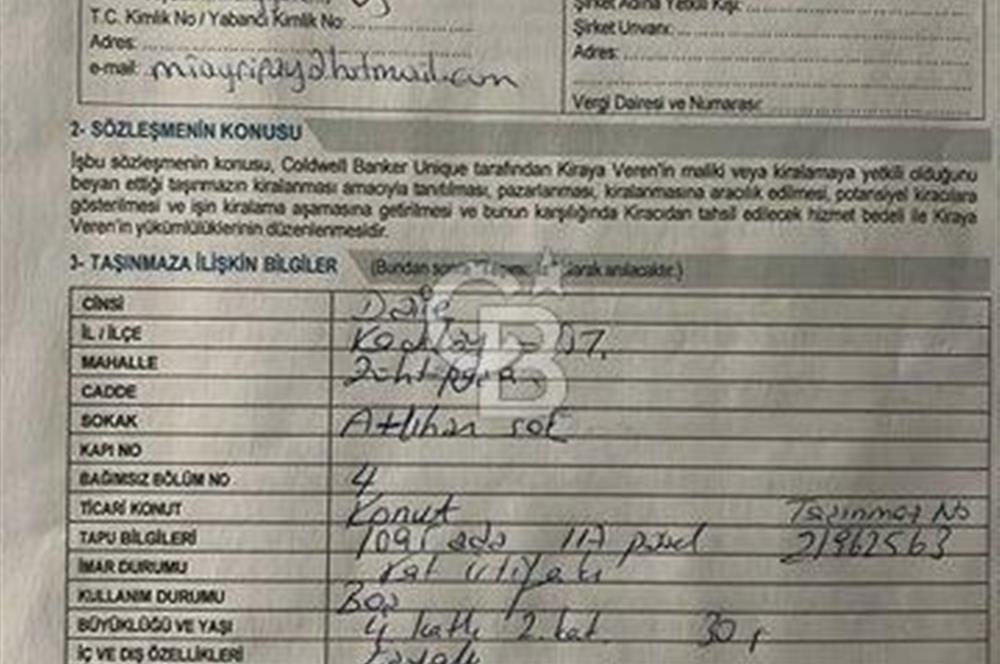 T.C. Kimlik No / Yabancı Kimlik No:
Adres:
e-mail:
Şirket Adına Yetkili Kişi:
Şirket Unvanı:
Adres:
Vergi Dairesi ve Numarası:
2- SÖZLEŞMENİN KONUSU
İşbu sözleşmenin konusu, Coldwell Banker Unique tarafından Kiraya Veren'in maliki veya kiralamaya yetkili olduğunu
beyan ettiği taşınmazın kiralanması amacıyla tanıtılması, pazarlanması, kiralanmasına aracılık edilmesi, potansiyel kiracılara
gösterilmesi ve işin kiralama aşamasına getirilmesi ve bunun karşılığında Kiracıdan tahsil edilecek hizmet bedeli ile Kiraya
Veren'in yükümlülüklerinin düzenlenmesidir.
3- TAŞINMAZA İLİŞKİN BİLGİLER (Bundan sonra olarak anılacaktır.)
CİNSİ Daire
İL / İLÇE Kadıköy - İST.
MAHALLE Zühtüpaşa
CADDE
SOKAK Atlıhan sok
KAPI NO
BAĞIMSIZ BÖLÜM NO 4
TİCARİ KONUT Konut Taşınmaz No
TAPU BİLGİLERİ ada parsel 21962563
İMAR DURUMU Kat irtifakı
KULLANIM DURUMU Boş
BÜYÜKLÜĞÜ VE YAŞI 4 katlı 2. kat 30
İÇ VE DIŞ ÖZELLİKLERİ
CB